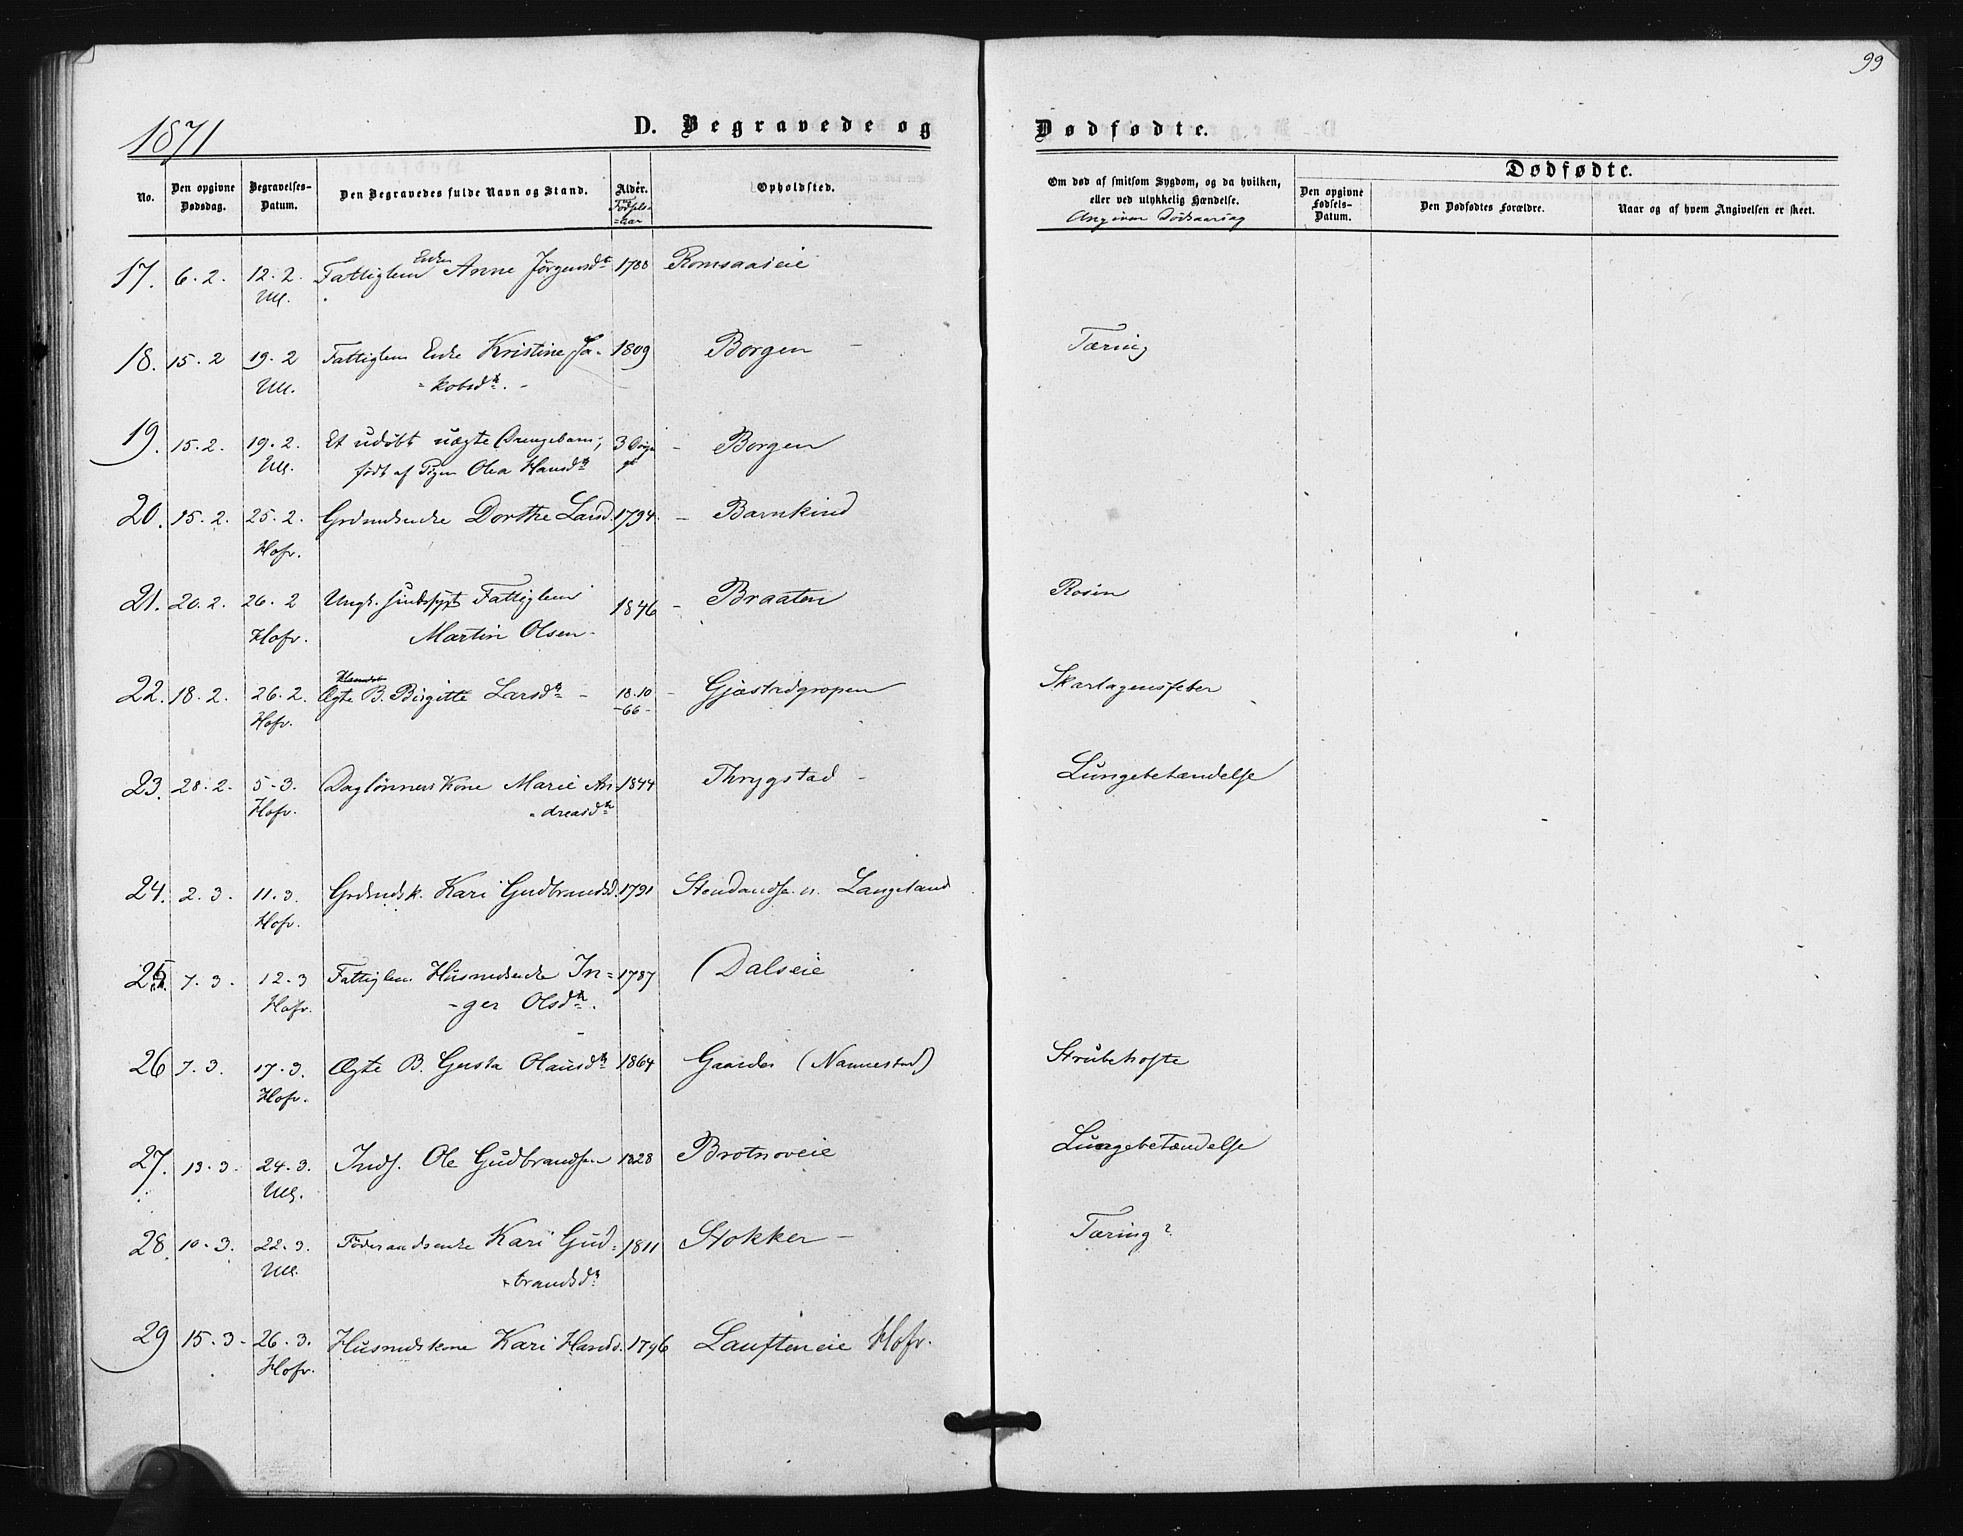 99
1871
D. Begravede og Dødfødte.
No.
Den opgivne Dødsdag.
Begravelses-Datum.
Den Begravedes fulde Navn og Stand.
Alder.
Fødsels-
-aar
Opholdsted.
Om død af smitsom Sygdom, og da hvilken, eller ved ulykkelig Hændelse.
Angiven Dødsaarsag
Dødfødte.
Den opgivne Fødsels-Datum.
Den Dødfødtes Forældre.
Naar og af hvem Angivelsen er skeet.
17. 6.2. 12.2. Fattiglem Enke Anne Jørgensdt 1788 Romsaaseie
Ull.
18. 15.2 19.2 Fattiglem Enke Kristine Ja- 1809 Borgen - Tæring
Ull. -kobsdt. -
19. 15.2. 19.2. Et udøbt uægte Drengebarn; 3 - Borgen
Ull. født af Pigen Olea Hansdt
20. 15.2. 25.2. Grdmdsenke Dorthe Larsd. 1794. - Barnkind
Hofv.
21. 20.2. 26.2 Ungk. sindssygt Fattiglem 1846 - Braaten Rosen
Hofv. Martin Olsen -
22. 18.2. 26.2. Ægte B. Birgitte Larsdt - 18.10 - Gjæstadgropen Skarlagensfeber
Hofv. -66-
23. 28.2. 5.3. Daglønners Kone Marie An- 1844 Thrygstad - Lungebetændelse
Hofv. -dreasdt
24. 2.3. 11.3. Grdmdsk. Kari Gudbrandsd. 1791 Langeland
Hofv.
25. 7.3. 12.3 Fattiglem Husmdsenke In= 1787 Dalseie
Hofv. -ger Olsdt.
26 7.3. 17.3. Ægte B. Gusta Olausdt 1864 Gaarder (Nannestad) Strubehoste
Hofv.
27. 13.3. 24.3. Inds. Ole Gudbrandsen 1828 Brotnoveie Lungebetændelse
Ull.
28. 10.3. 22.3. Føderaadsenke Kari Gud- 1811 Stokker - Tæring?
Ull. -brandsdt
29 15.3- 26.3. Husmdskone Kari Hansd. 1796 Laufteneie Hofv.
Hofv.